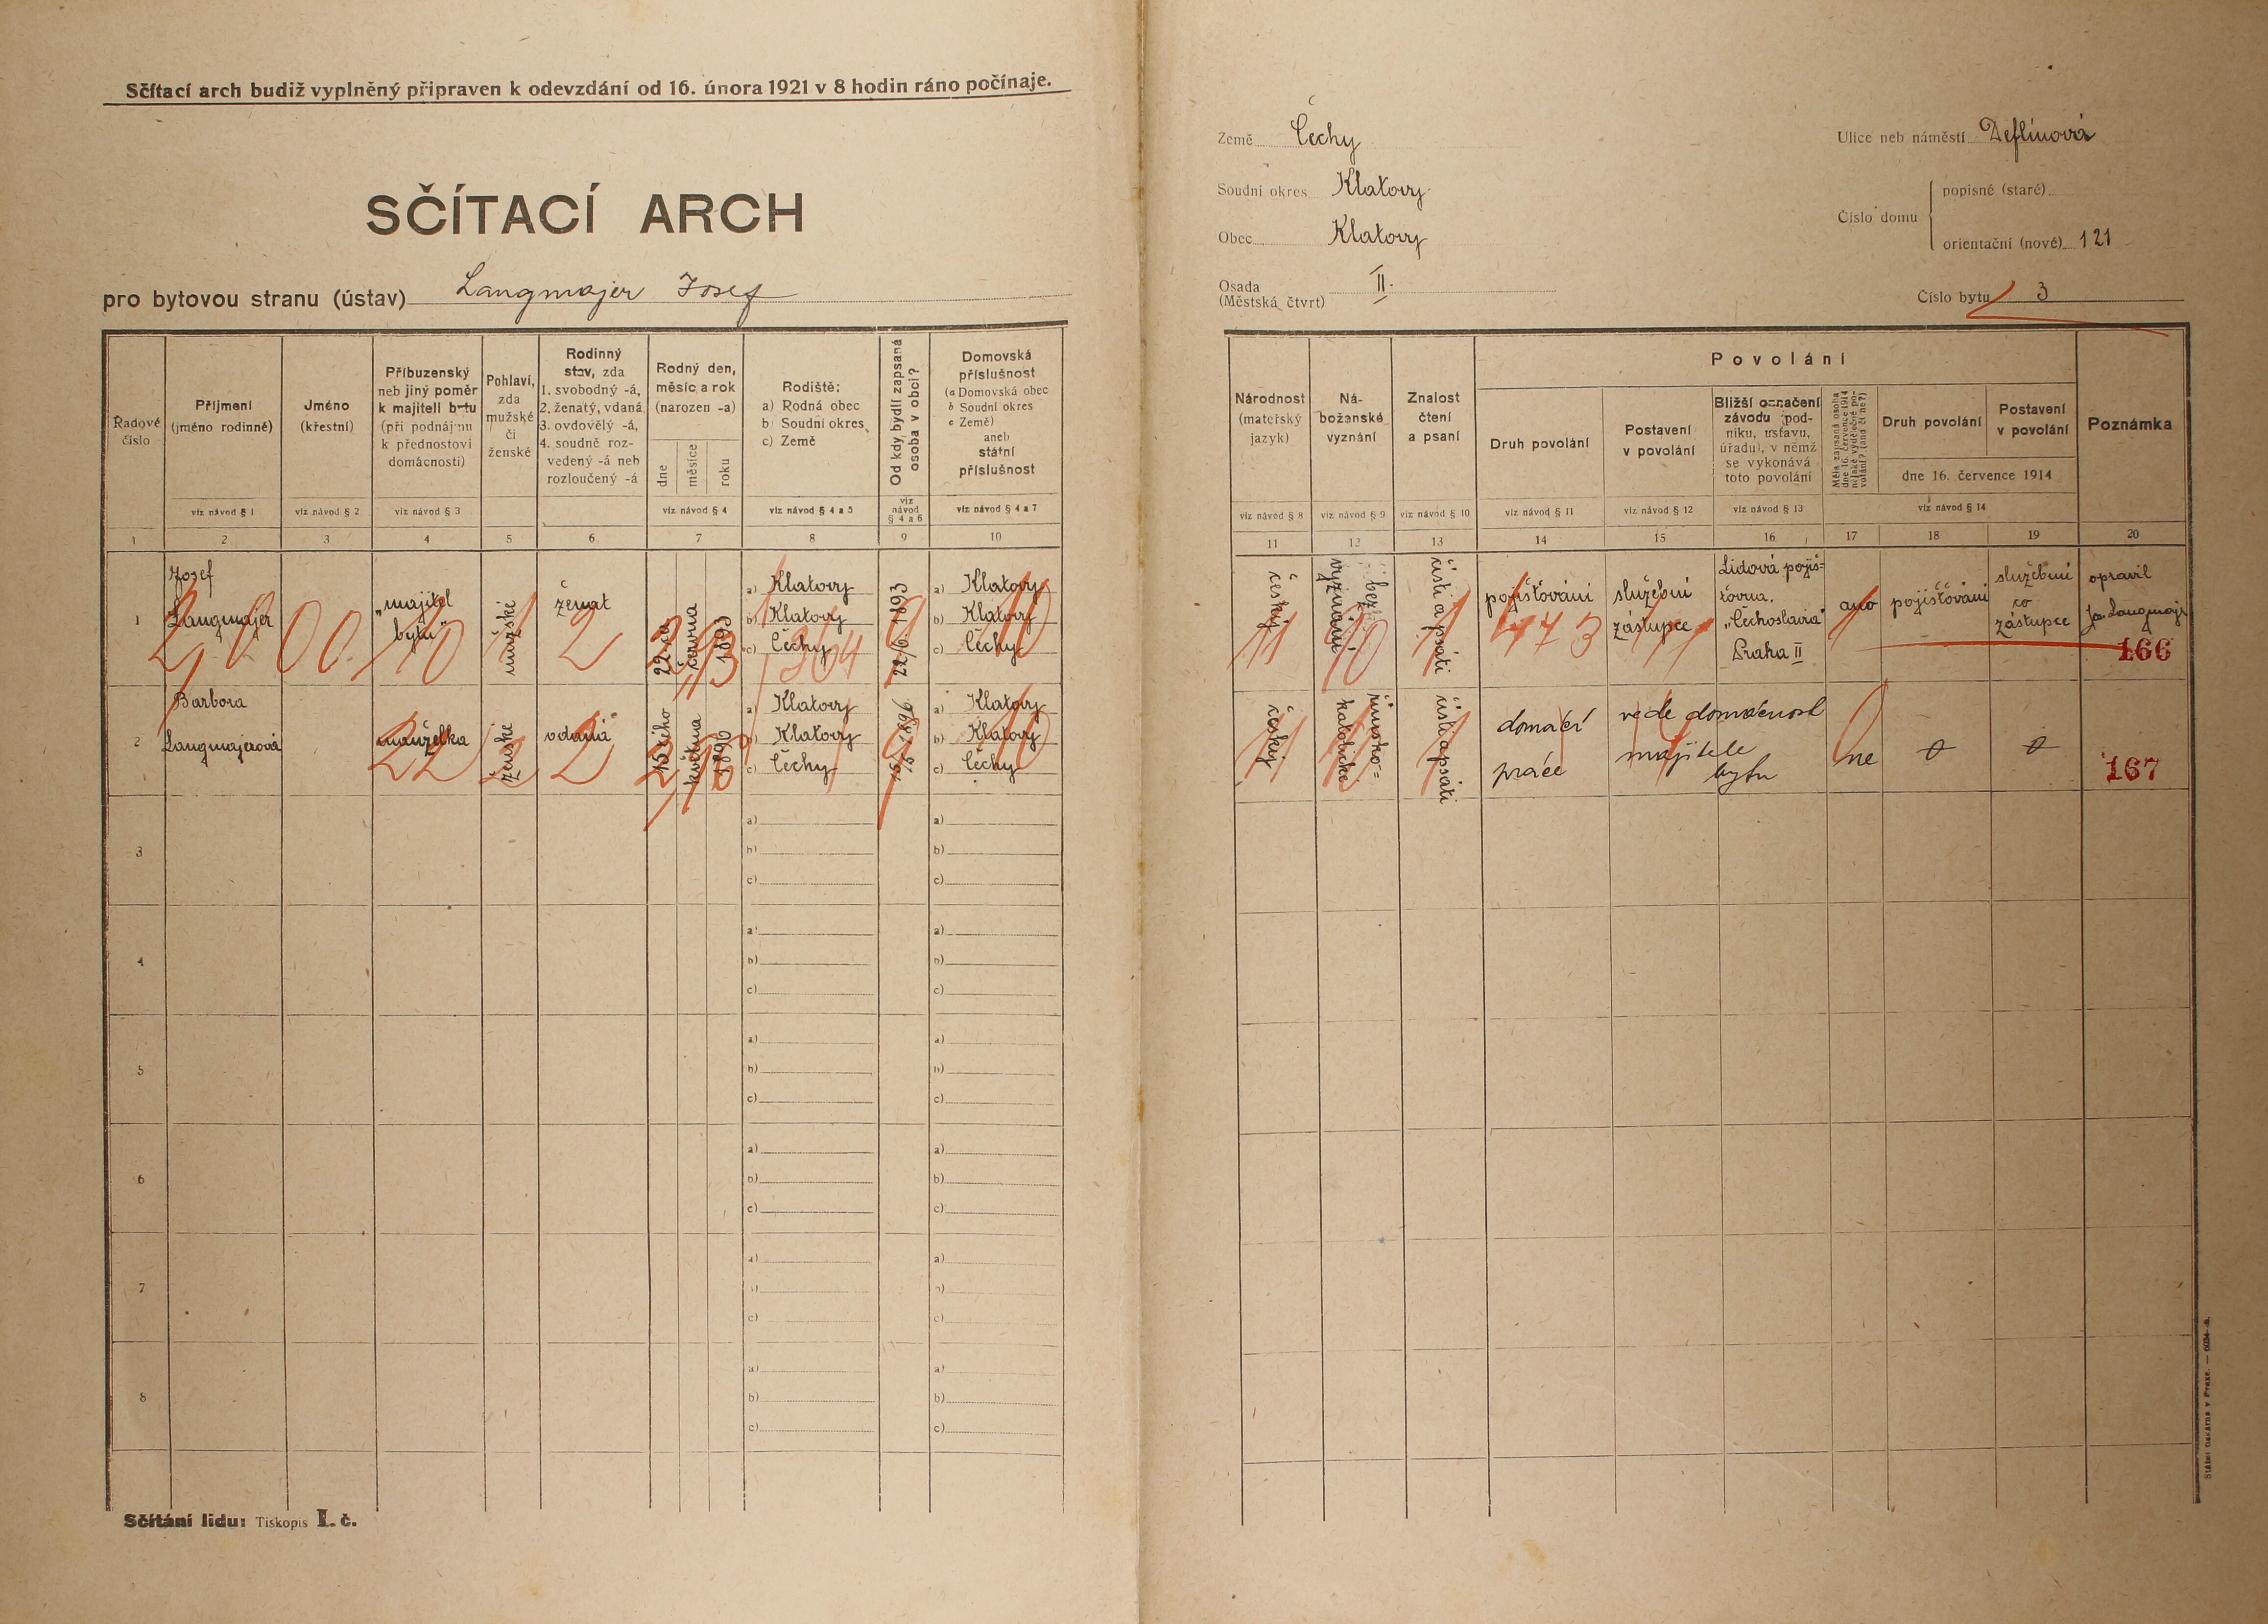 Sčítací arch budiž vyplněný připraven k odevzdání od 16. února 1921 v 8 hodin ráno počínaje.
SČÍTACÍ ARCH
pro bytovou stranu (ústav) Langmajer Josef
Země Čechy
Soudní okres Klatovy
Obec Klatovy
Osada II.
(Městská čtvrt)
Ulice neb náměstí Deflínová
Číslo domu
popisné (staré)
orientační (nové) 121
Číslo bytu 3
Řadové
číslo
Příjmení
(jméno rodinné)
viz návod § 1
Jméno
(křestní)
viz návod § 2
Příbuzenský
neb jiný poměr
k majiteli bytu
(při podnájmu
k přednostovi
domácnosti)
viz návod § 3
Pohlaví,
zda
mužské
či
ženské
Rodinný
stav, zda
1. svobodný -á,
2. ženatý, vdaná,
3. ovdovělý -á,
4. soudně roz-
vedený -á neb
rozloučený -á
Rodný den,
měsíc a rok
(narozen -a)
dne
měsíce
roku
viz návod § 4
Rodiště:
a) Rodná obec
b) Soudní okres
c) Země
viz návod § 4 a 5
Od kdy bydlí zapsaná
osoba v obci?
viz
návod
§ 4 a 6
Domovská
příslušnost
(a Domovská obec
b Soudní okres
c Země)
aneb
státní
příslušnost
viz návod § 4 a 7
Národnost
(mateřský
jazyk)
viz návod § 8
Ná-
boženské
vyznání
viz návod § 9
Znalost
čtení
a psaní
viz návod § 10
Povolání
Druh povolání
viz návod § 11
Postavení
v povolání
viz návod § 12
Bližší označení
závodu (pod-
niku, ústavu,
úřadu), v němž
se vykonává
toto povolání
viz návod § 13
Měla zapsaná osoba
dne 16. července 1914
nějaké výdělečné po-
volání? (ano či ne?)
Druh povolání
Postavení
v povolání
dne 16. července 1914
viz návod § 14
Poznámka
1 2 3 4 5 6 7 8 9 10 11 12 13 14 15 16 17 18 19 20
1
Josef
Langmajer
„majitel
bytu"
mužské
ženat
22ho
června
1893
a) Klatovy
b) Klatovy
c) Čechy
22/6. 1893
a) Klatovy
b) Klatovy
c) Čechy
český
bez
vyznání
čísti a psáti
pojišťování
služební
zástupce
Lidová pojiš-
ťovna.
„Čechoslavia"
Praha II
ano
pojišťování
služební
co
zástupce
opravil
Jos. Langmajer
166
2
Barbora
Langmajerová
manželka
ženské
vdaná
15tého
května
1896
a) Klatovy
b) Klatovy
c) Čechy
15/5 1896
a) Klatovy
b) Klatovy
c) Čechy
český
římsko=
katolické
čísti a psáti
domácí
práce
vede domácnost
majitele
bytu
ne
0
0
167
3
a)
b)
c)
a)
b)
c)
4
a)
b)
c)
a)
b)
c)
5
a)
b)
c)
a)
b)
c)
6
a)
b)
c)
a)
b)
c)
7
a)
b)
c)
a)
b)
c)
8
a)
b)
c)
a)
b)
c)
Sčítání lidu: Tiskopis I. č.
Státní tiskárna v Praze.